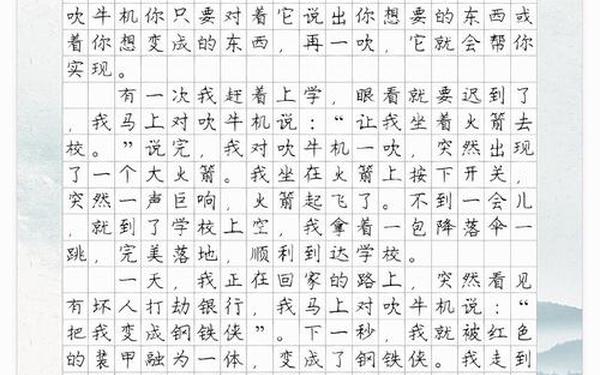 吹牛机你只要对着它说出你想要的东西或
着你想变成的东西，再一吹，它就会帮你
实现。
有一次我赶着上学，眼看就要迟到了
，我马上对吹牛机说：“让我坐着火箭去
校。”说完，我对吹牛机一吹，突然出现
了一个大火箭。我坐在火箭上按下开关，
突然一声巨响，火箭起飞了。不到一会儿
，就到了学校上空，我拿着一包降落伞一
跳，完美落地，顺利到达学校。
一天，我正在回家的路上，突然看见
有坏人打劫银行，我马上对吹牛机说：“
把我变成钢铁侠”。下一秒，我就被红色
的装甲融为一体，变成了钢铁侠。我走到